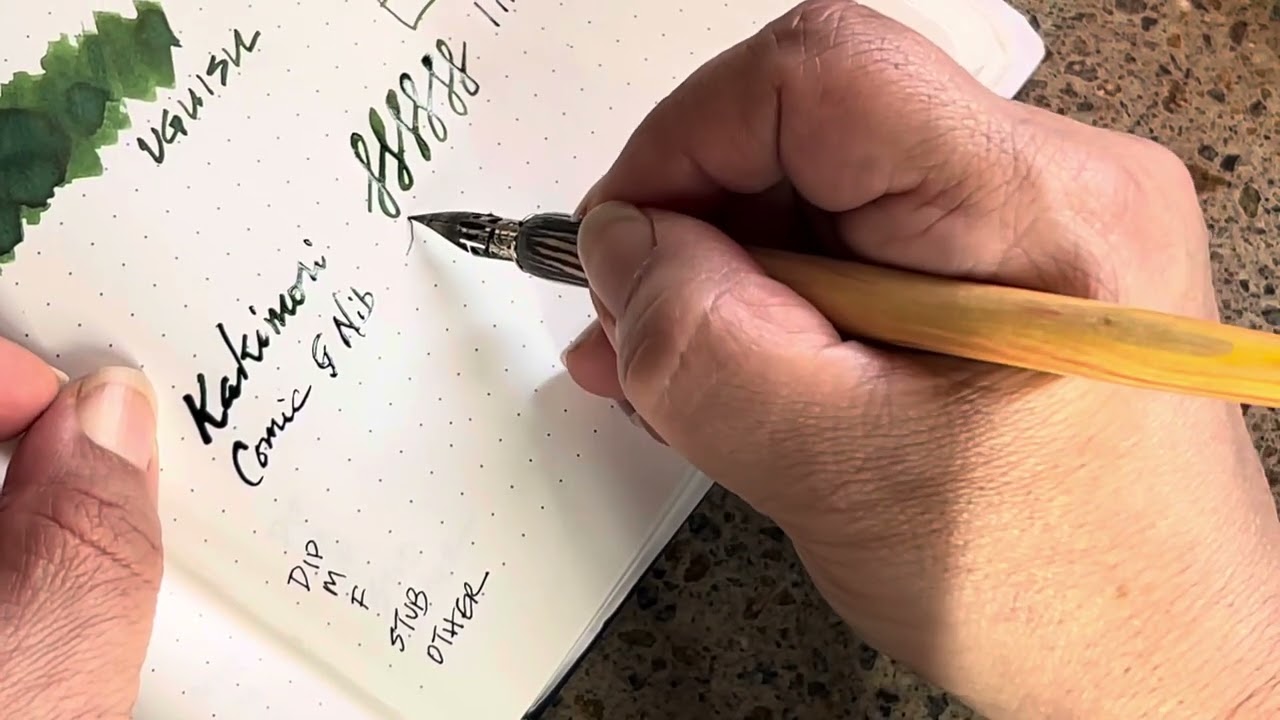 VGUISH
Kakimori
Comic G Nib
DIP
M
F
STUB
OTHER